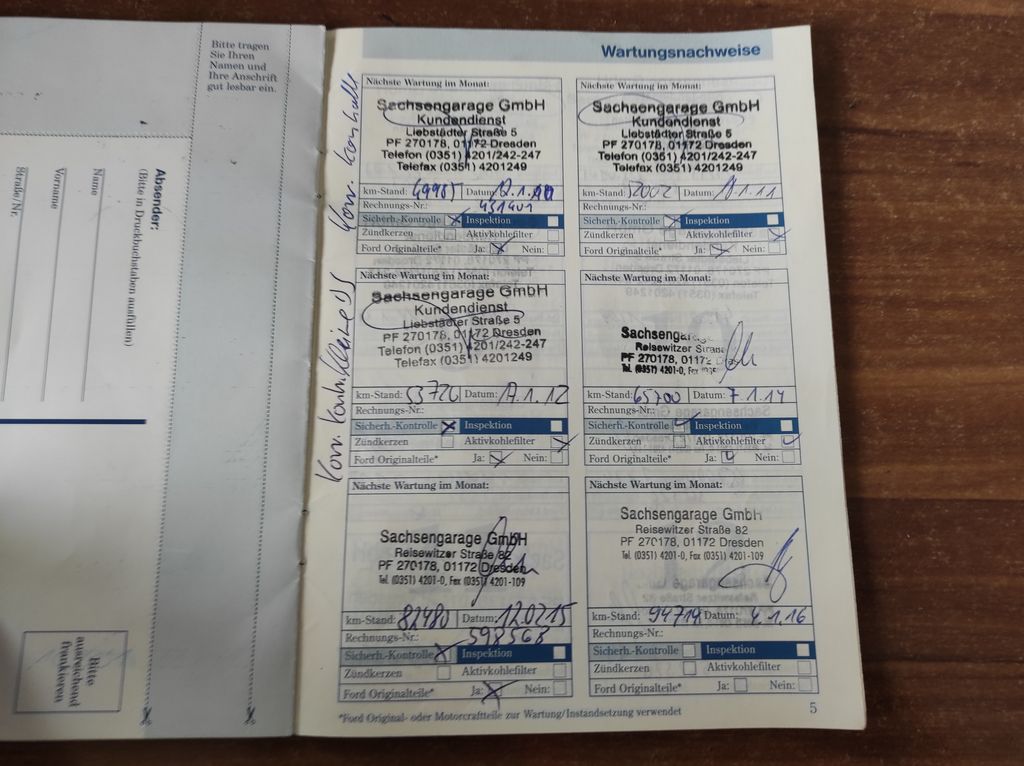 Bitte tragen
Sie Ihren
Namen und
Ihre Anschrift
gut lesbar ein.
Absender:
(Bitte in Druckbuchstaben ausfüllen)
Name
Vorname
Straße/Nr.
Bitte
ausreichend
frankieren
Wartungsnachweise
Nächste Wartung im Monat:
Sachsengarage GmbH
Kundendienst
Liebstädter Straße 5
PF 270178, 01172 Dresden
Telefon (0351) 4201/242-247
Telefax (0351) 4201249
km-Stand: 49985 Datum:
Rechnungs-Nr.: 431401
Sicherh.-Kontrolle Inspektion
Zündkerzen Aktivkohlefilter
Ford Originalteile* Ja: Nein:
Nächste Wartung im Monat:
Sachsengarage GmbH
Kundendienst
Liebstädter Straße 5
PF 270178, 01172 Dresden
Telefon (0351) 4201/242-247
Telefax (0351) 4201249
km-Stand: 52002 Datum:
Rechnungs-Nr.:
Sicherh.-Kontrolle Inspektion
Zündkerzen Aktivkohlefilter
Ford Originalteile* Ja: Nein:
Nächste Wartung im Monat:
Sachsengarage GmbH
Kundendienst
Liebstädter Straße 5
PF 270178, 01172 Dresden
Telefon (0351) 4201/242-247
Telefax (0351) 4201249
km-Stand: 53726 Datum:
Rechnungs-Nr.:
Sicherh.-Kontrolle Inspektion
Zündkerzen Aktivkohlefilter
Ford Originalteile* Ja: Nein:
Nächste Wartung im Monat:
Reisewitzer
PF 270178, 01172
Tel. (0351) 4201-0, Fax
km-Stand: 65700 Datum: 7.1.14
Rechnungs-Nr.:
Sicherh.-Kontrolle Inspektion
Zündkerzen Aktivkohlefilter
Ford Originalteile* Ja: Nein:
Nächste Wartung im Monat:
Sachsengarage GmbH
Reisewitzer Straße 82
PF 270178, 01172 Dresden
Tel. (0351) 4201-0, Fax (0351) 4201-109
km-Stand: 82480 Datum: 12.02.15
Rechnungs-Nr.: 598568
Sicherh.-Kontrolle Inspektion
Zündkerzen Aktivkohlefilter
Ford Originalteile* Ja: Nein:
Nächste Wartung im Monat:
Sachsengarage GmbH
Reisewitzer Straße 82
PF 270178, 01172 Dresden
Tel. (0351) 4201-0, Fax (0351) 4201-109
km-Stand: 94719 Datum: 4.1.16
Rechnungs-Nr.:
Sicherh.-Kontrolle Inspektion
Zündkerzen Aktivkohlefilter
Ford Originalteile* Ja: Nein:
*Ford Original- oder Motorcraftteile zur Wartung/Instandsetzung verwendet
5